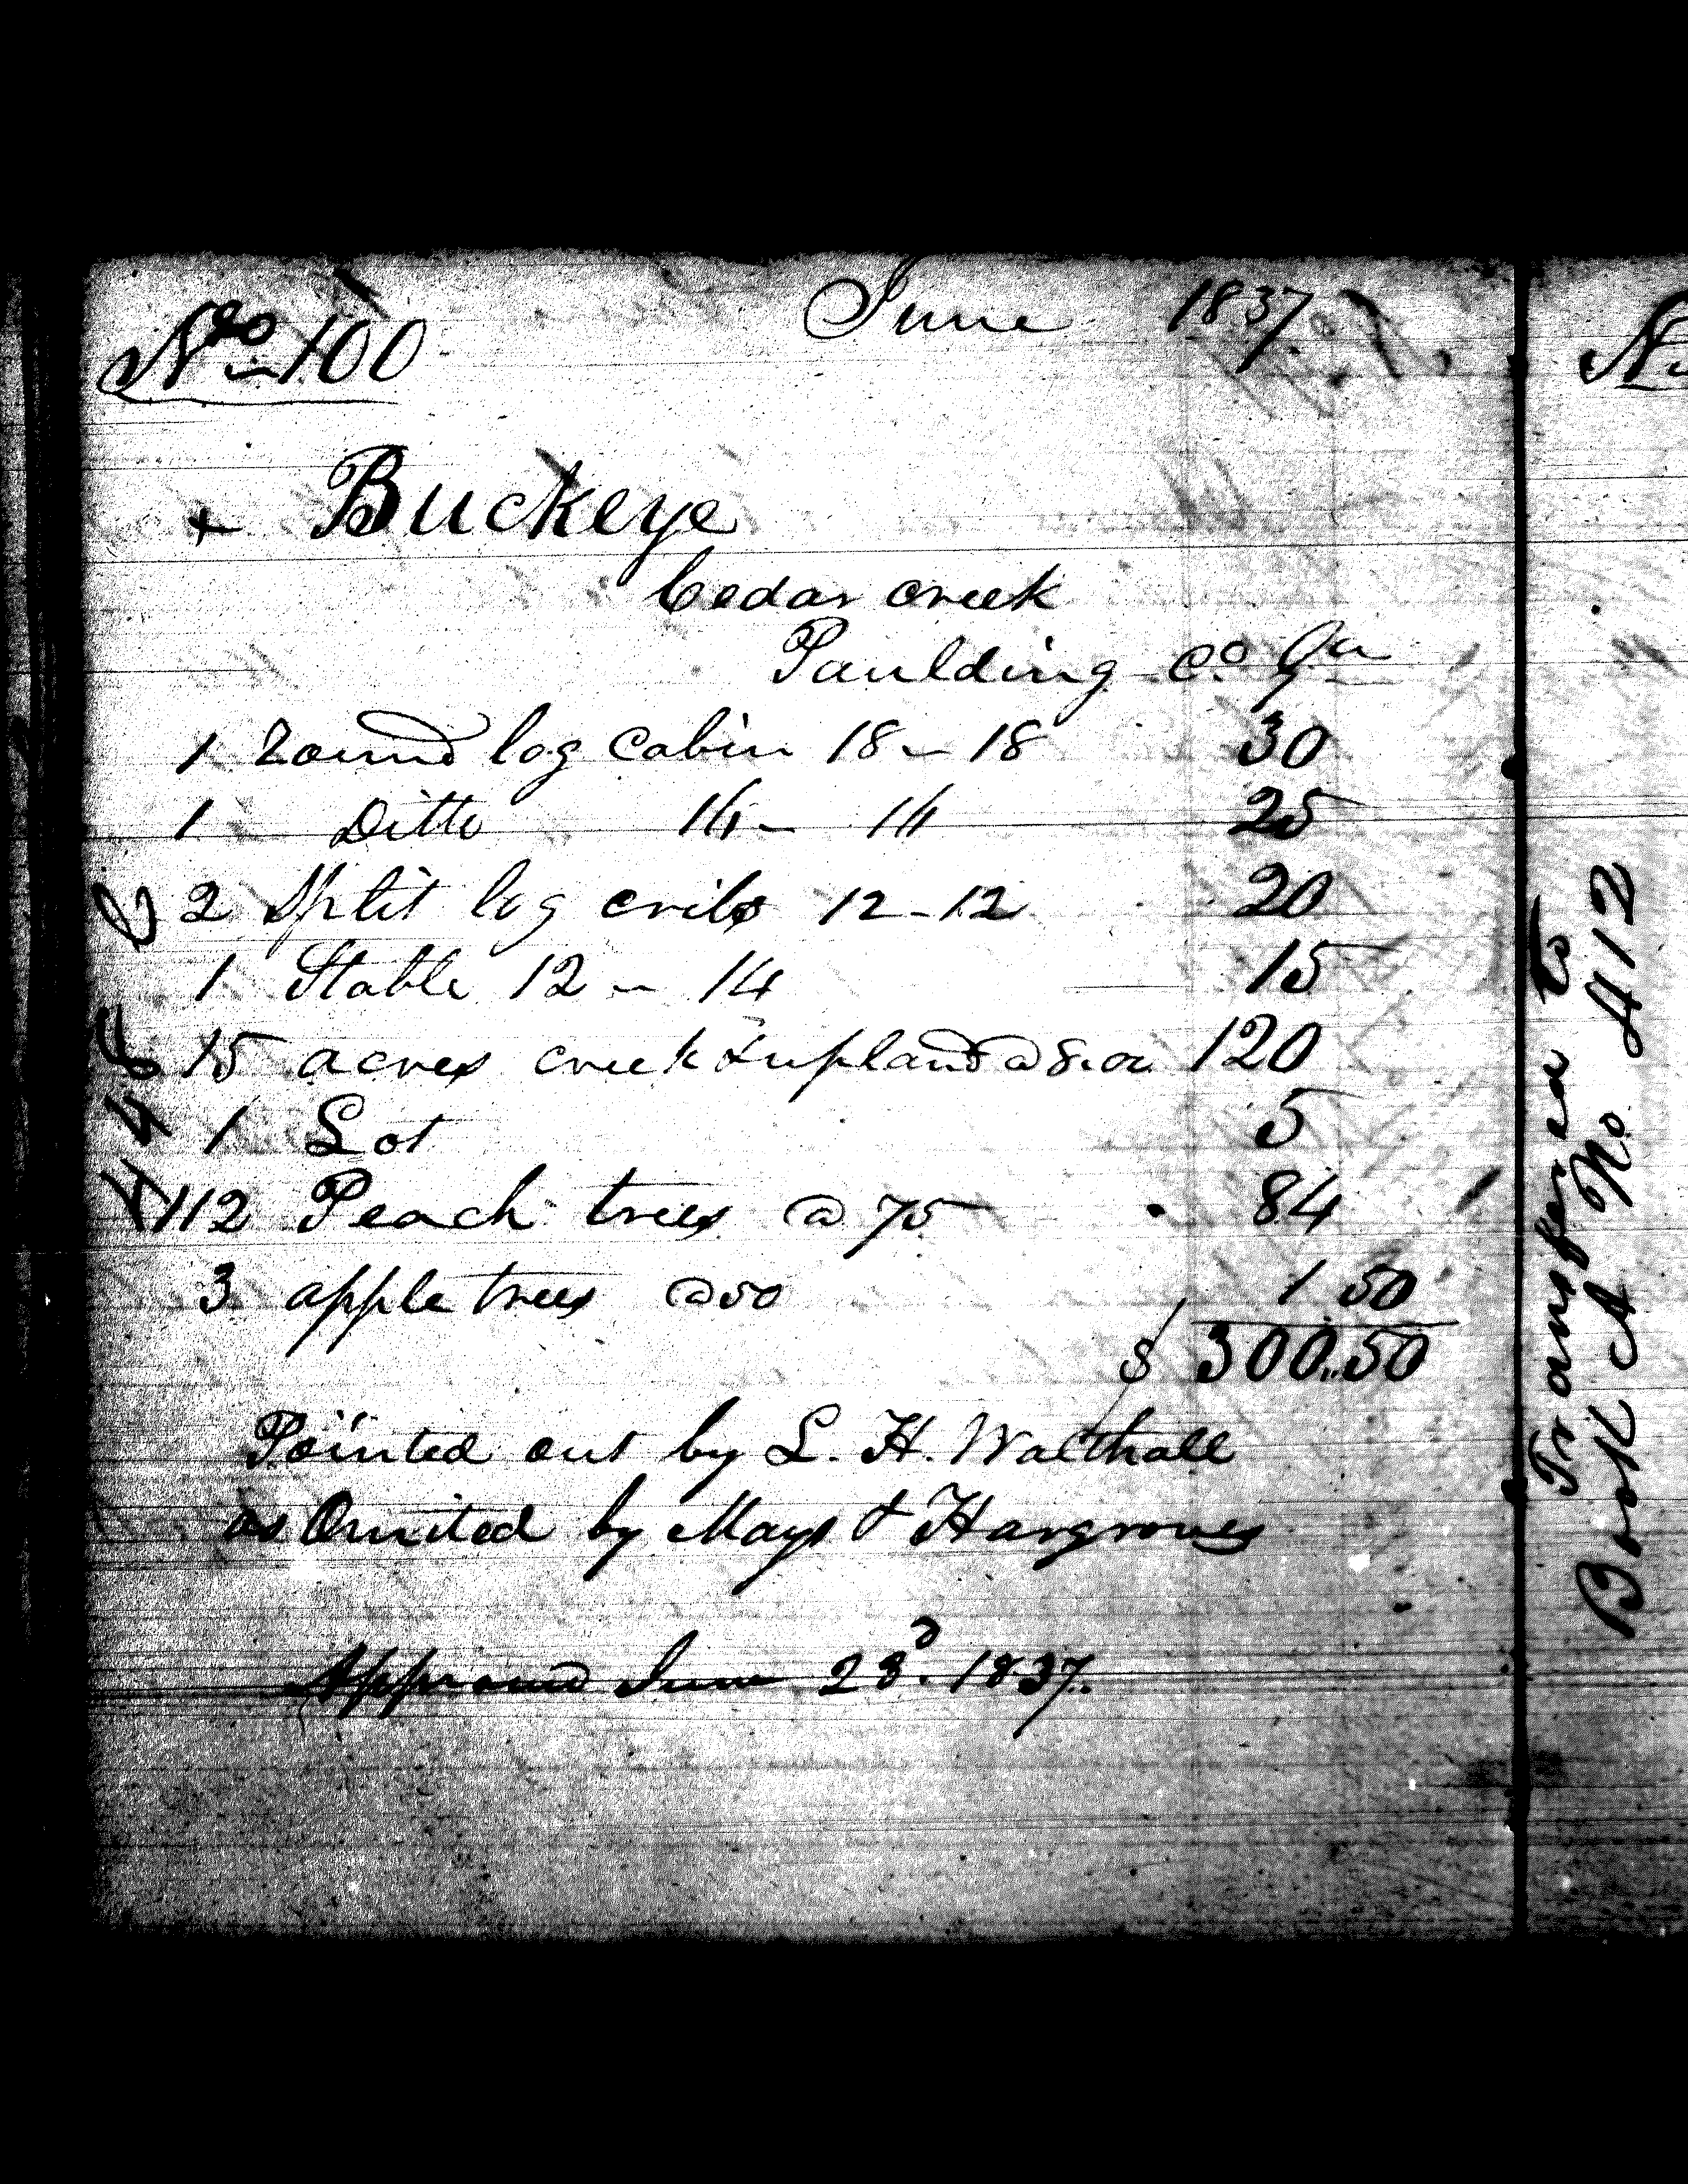 June 1837
No 100
+ Buckeye
Cedar creek
Paulding Co. Ga
1 round log Cabin 18 - 18 30
1 Ditto 14 - 14 25
2 Split log cribs 12 - 12 20
1 Stable 12 - 14 15
15 acres creek & upland @ 8.00 120
1 Lot 5
112 Peach trees @ 75 84
3 apple trees @ 50 1 50
$ 300.50
Pointed out by L. H. Walthall
as Omited by Mays & Hargroves
Approved June 23d. 1837.
448
Transfered to
Book A No 412